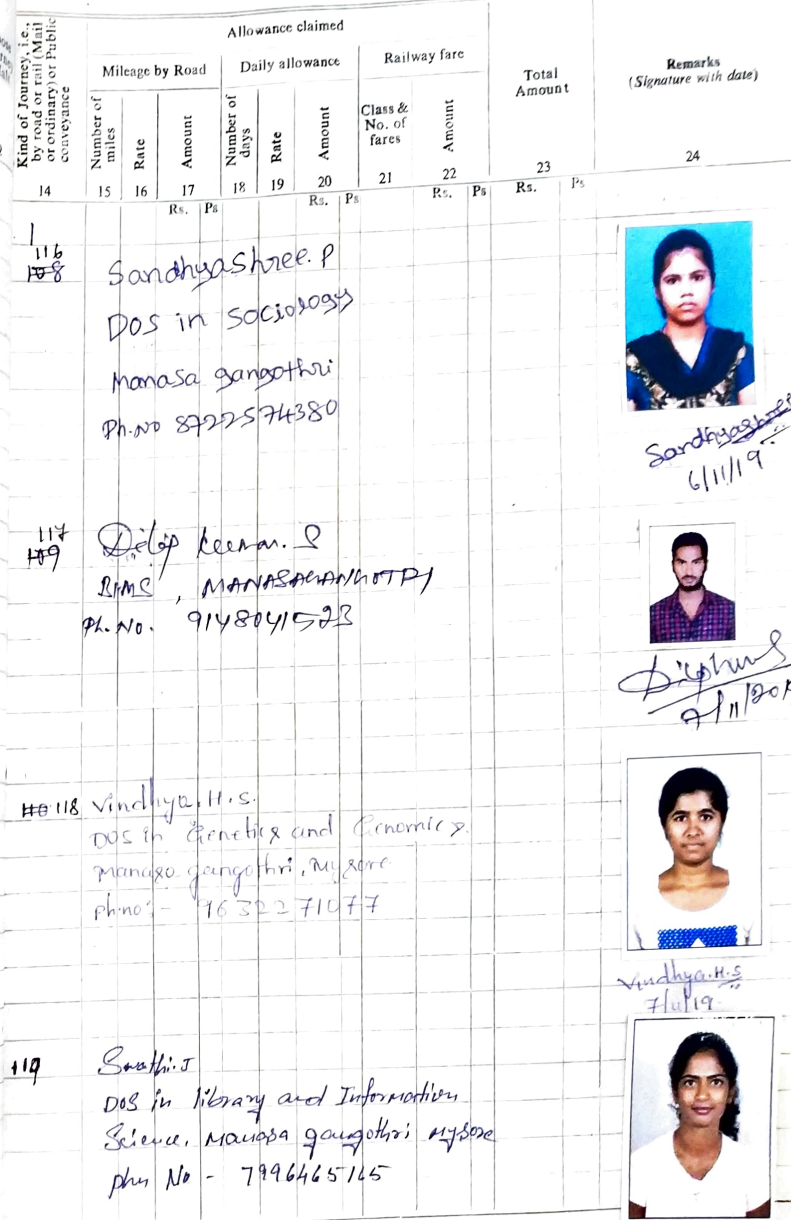 Allowance claimed
Kind of Journey, i.e., by road or rail (Mail or ordinary) or Public conveyance
Mileage by Road
Daily allowance
Railway fare
Total Amount
Remarks
(Signature with date)
Number of miles
Rate
Amount
Number of days
Rate
Amount
Class & No. of fares
Amount
14 15 16 17 18 19 20 21 22 23 24
Rs. Ps Rs. Ps Rs. Ps Rs. Ps
116
108
Sandhyashree. P
DOS in Sociology
Manasa gangothri
Ph.No 8722574380
Sandhyashree
6/11/19
117
109
Dilip Kumar. S
BIMS, MANASAGANGOTRI
Ph. No. 9148041523
7/11/201
110 118 Vindhya. H. S.
DOS in Genetics and Genomics
Manasa gangothri, Mysore
ph.no:- 9632271077
Vindhya. H.S
7/11/19
119
Swathi. J
DOS in library and Information
Science, Manasa gangothri Mysore
phn No - 7996465165